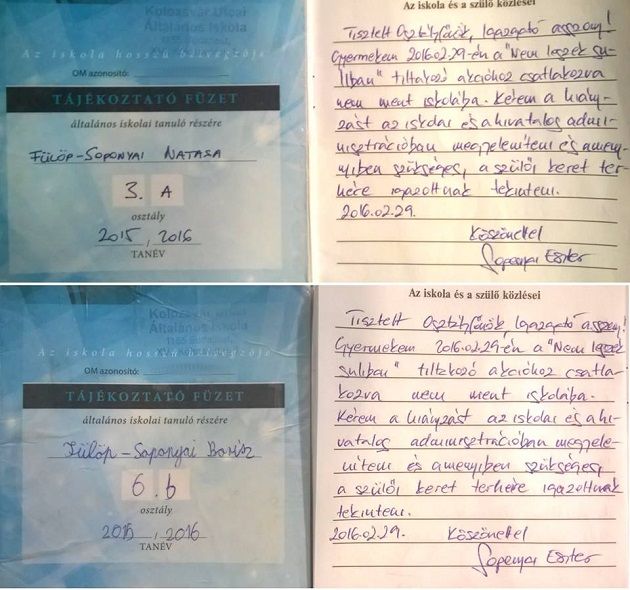 Kolozsvár Utcai
Általános Iskola
1155 Budapest,
Az iskola hosszú bélvegzője
OM azonosító:
TÁJÉKOZTATÓ FÜZET
általános iskolai tanuló részére
FÜLÖP-SOPONYAI NATASA
3. A
osztály
2015 / 2016
TANÉV
Az iskola és a szülő közlései
Tisztelt Osztályfőnök, Igazgató asszony!
Gyermekem 2016.02.29-én a "Nem leszek su-
liban" tiltakozó akcióhoz csatlakozva
nem ment iskolába. Kérem a hiány-
zást az iskolai és a hivatalos admi-
nisztrációban megjeleníteni és ameny-
nyiben szükséges, a szülői keret ter-
hére igazoltnak tekinteni.
2016.02.29.
Köszönettel
Soponyai Eszter
Kolozsvár Utcai
Általános Iskola
1155 Budapest,
Az iskola hosszú bélvegzője
OM azonosító:
TÁJÉKOZTATÓ FÜZET
általános iskolai tanuló részére
Fülöp-Soponyai Borisz
6. b
osztály
2015 / 2016
TANÉV
Az iskola és a szülő közlései
Tisztelt Osztályfőnök, Igazgató asszony!
Gyermekem 2016.02.29-én a "Nem leszek
suliban" tiltakozó akcióhoz csatla-
kozva nem ment iskolába.
Kérem a hiányzást az iskolai és a hi-
vatalos adminisztrációban megjele-
níteni és amenyiben szükséges,
a szülői keret terhére igazoltnak
tekinteni.
2016.02.29. Köszönettel
Soponyai Eszter